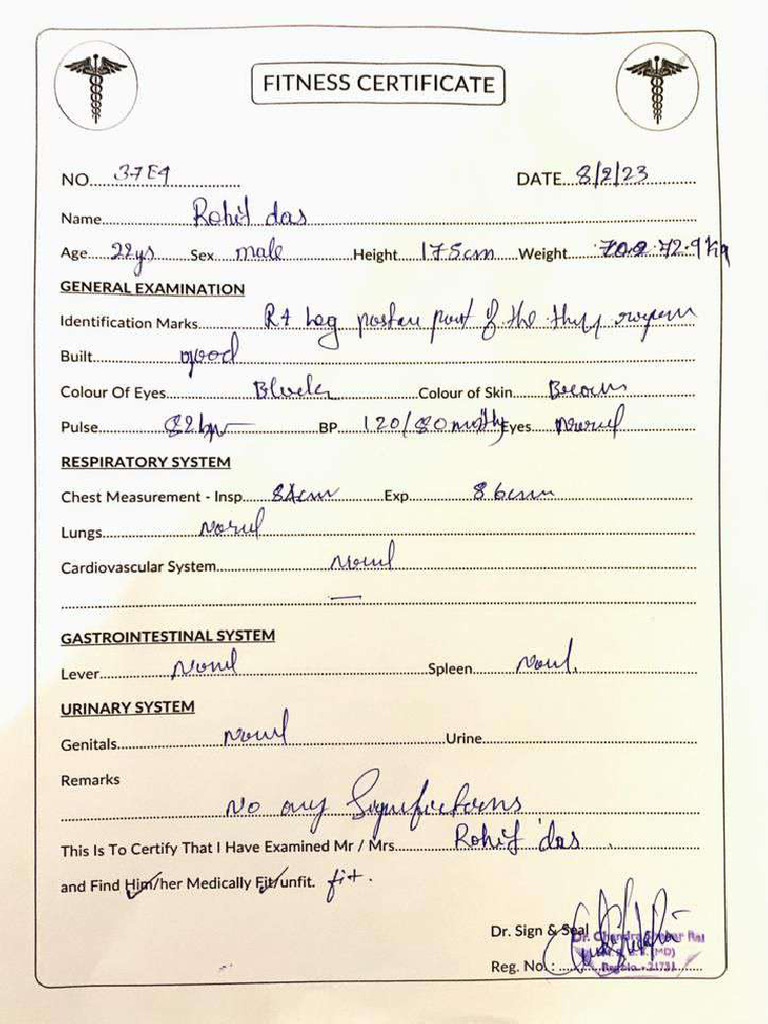 FITNESS CERTIFICATE
NO. 37E4 DATE 8/2/23
Name Rohit das
Age 22ys Sex male Height 175cm Weight 70.2 72.9 kg
GENERAL EXAMINATION
Identification Marks Rt leg part of the
Built good
Colour Of Eyes Black Colour of Skin Brown
Pulse 82 BP 120/80 Eyes Normal
RESPIRATORY SYSTEM
Chest Measurement - Insp 84cm Exp 86cm
Lungs Normal
Cardiovascular System Normal
GASTROINTESTINAL SYSTEM
Lever Normal Spleen Normal
URINARY SYSTEM
Genitals Normal Urine
Remarks
No any
This Is To Certify That I Have Examined Mr / Mrs Rohit das
and Find Him/her Medically Fit/unfit. fit.
Dr. Sign & Seal
Reg. No. :